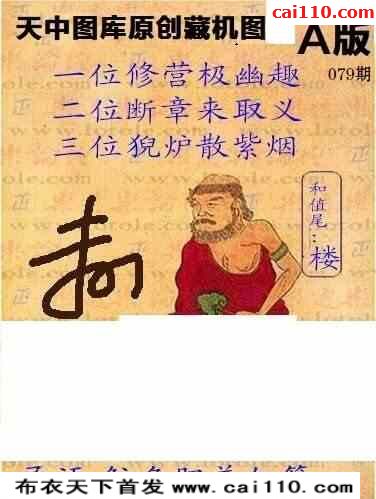 cai110.com
天中图库原创藏机图 A版
079期
一位修营极幽趣
二位断章来取义
三位猊炉散紫烟
和值尾:楼
布衣天下首发 www.cai110.com